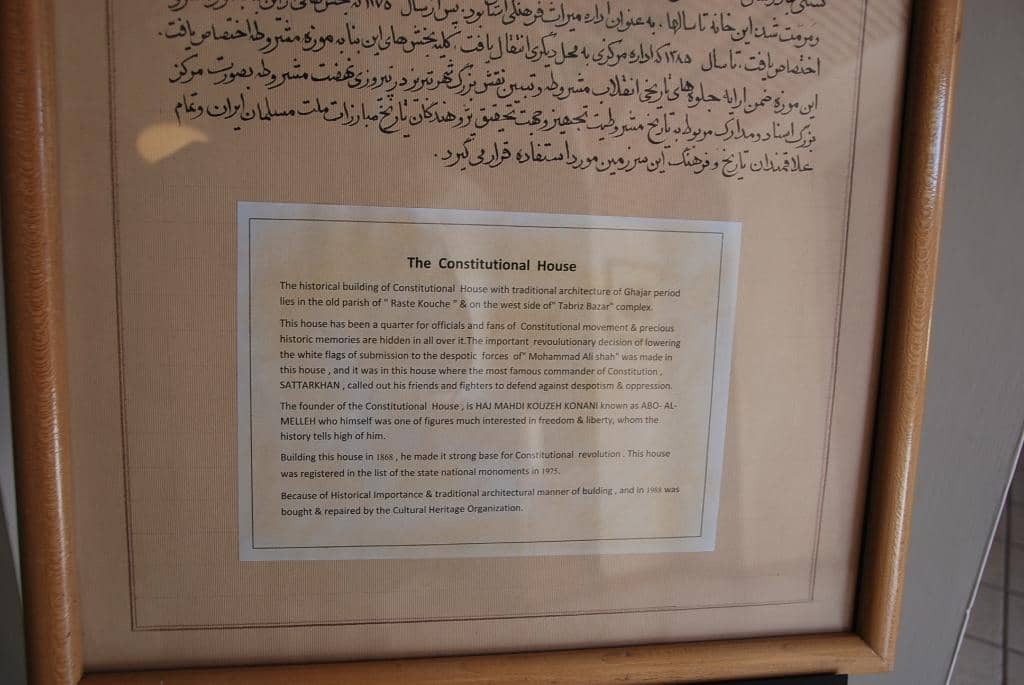 و مرمت شدن این خانه تا سالها، به عنوان اداره میراث فرهنگی استان بود. پس از سال ۱۳۷۵ که بخش‌های
اختصاص یافت، تا سال ۱۳۸۵ که اداره مرکزی به محل دیگری انتقال یافت، کلیه بخش‌های این بنا به موزه مشروطه اختصاص یافت.
این موزه ضمن ارایه جلوه های تاریخی انقلاب مشروطه و تبیین نقش بزرگ شهر تبریز در پیروزی نهضت مشروطه بصورت مرکز
بزرگ اسناد و مدارک مربوط به تاریخ مشروطیت تجهیز و جهت تحقیق پژوهندگان تاریخ مبارزات ملت مسلمان ایران و تمام
علاقمندان تاریخ و فرهنگ این سرزمین مورد استفاده قرار می گیرد.
The Constitutional House
The historical building of Constitutional House with traditional architecture of Ghajar period
lies in the old parish of " Raste Kouche " & on the west side of" Tabriz Bazar" complex.
This house has been a quarter for officials and fans of Constitutional movement & precious
historic memories are hidden in all over it.The important revoulutionary decision of lowering
the white flags of submission to the despotic forces of" Mohammad Ali shah" was made in
this house , and it was in this house where the most famous commander of Constitution ,
SATTARKHAN , called out his friends and fighters to defend against despotism & oppression.
The founder of the Constitutional House , is HAJ MAHDI KOUZEH KONANI known as ABO- AL-
MELLEH who himself was one of figures much interested in freedom & liberty, whom the
history tells high of him.
Building this house in 1868 , he made it strong base for Constitutional revolution . This house
was registered in the list of the state national monoments in 1975.
Because of Historical Importance & traditional architectural manner of bulding , and in 1988 was
bought & repaired by the Cultural Heritage Organization.